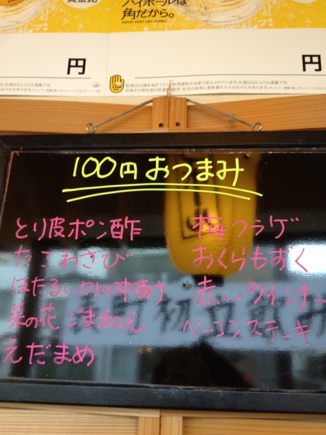 ハイボールは
角だから。
円
円
100円おつまみ
とり皮ポン酢
たこわさび
ほたるいかの沖漬け
菜の花ごま和え
えだまめ
梅クラゲ
おくらもずく
赤いウインナー
ベーコンステーキ